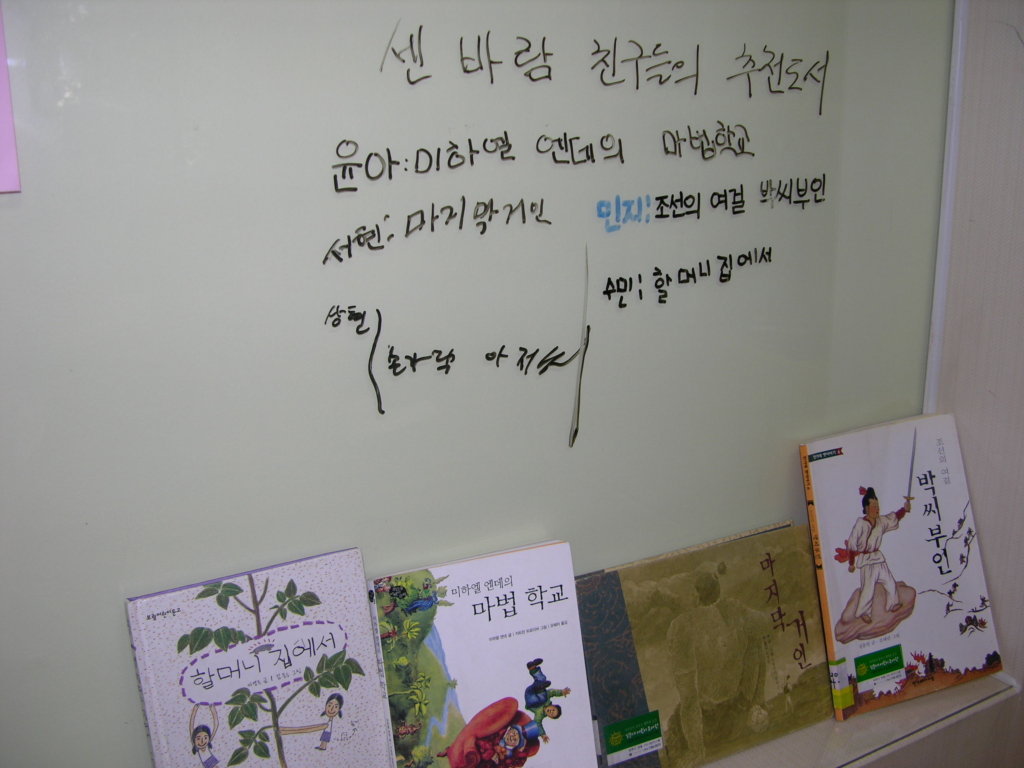 센 바람 친구들의 추천도서
윤아:미하엘 엔데의 마법학교
서현: 마지막거인
민지: 조선의 여걸 박씨부인
수민: 할머니 집에서
상현
손가락 아저씨
보림어린이문고
할머니 집에서
미하엘 엔데의
마법 학교
마지막
거인
조선의 여걸
박씨부인